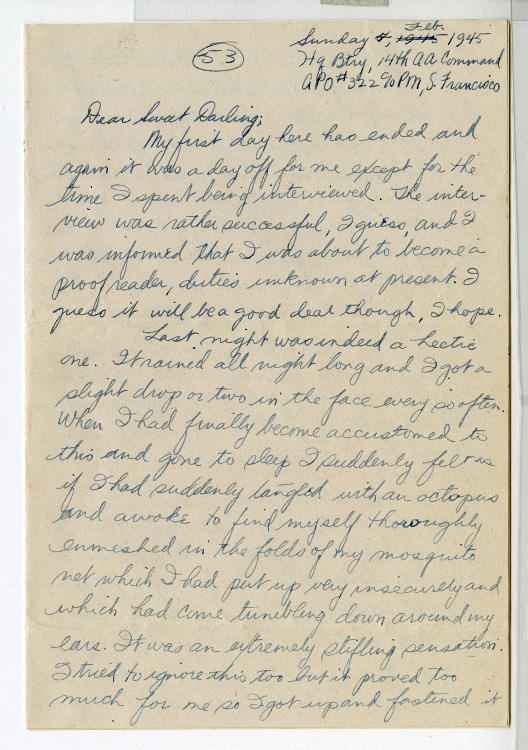 53
Feb.
Sunday 4, 1945 1945
Hq Btry, 14th AA Command
APO #322 c/o PM, S. Francisco
Dear Sweet Darling;
My first day here has ended and
again it was a day off for me except for the
time I spent being interviewed. The inter-
view was rather successful, I guess, and I
was informed that I was about to become a
proof reader, duties unknown at present. I
guess it will be a good deal though, I hope.
Last night was indeed a hectic
one. It rained all night long and I got a
slight drop or two in the face every so often.
When I had finally become accustomed to
this and gone to sleep I suddenly felt as
if I had suddenly tangled with an octopus
and awoke to find myself thoroughly
enmeshed in the folds of my mosquito
net which I had put up very insecurely and
which had come tumbling down around my
ears. It was an extremely stifling sensation.
I tried to ignore this too but it proved too
much for me so I got up and fastened it